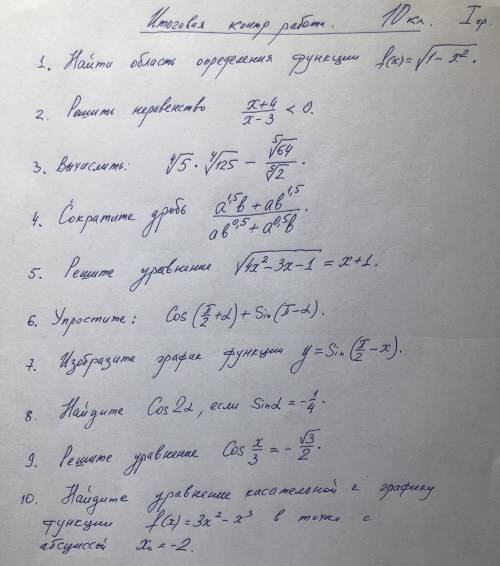 Итоговая контр работа. 10 кл. I гр.
1. Найти область определения функции f(x)=√(1-x²).
2. Решить неравенство (x+4)/(x-3) < 0.
3. Вычислить: ⁴√5 · ⁴√125 - ⁵√64/⁵√2.
4. Сократите дробь (a^1,5 b + ab^1,5)/(ab^0,5 + a^0,5 b).
5. Решите уравнение √(4x²-3x-1) = x+1.
6. Упростите: Cos(π/2+α)+Sin(π-α).
7. Изобразите график функции y=Sin(π/2-x).
8. Найдите Cos2α, если Sinα=-1/4.
9. Решите уравнение Cos x/3 = -√3/2.
10. Найдите уравнение касательной к графику
функции f(x)=3x²-x³ в точке с
абсциссой x₀=-2.